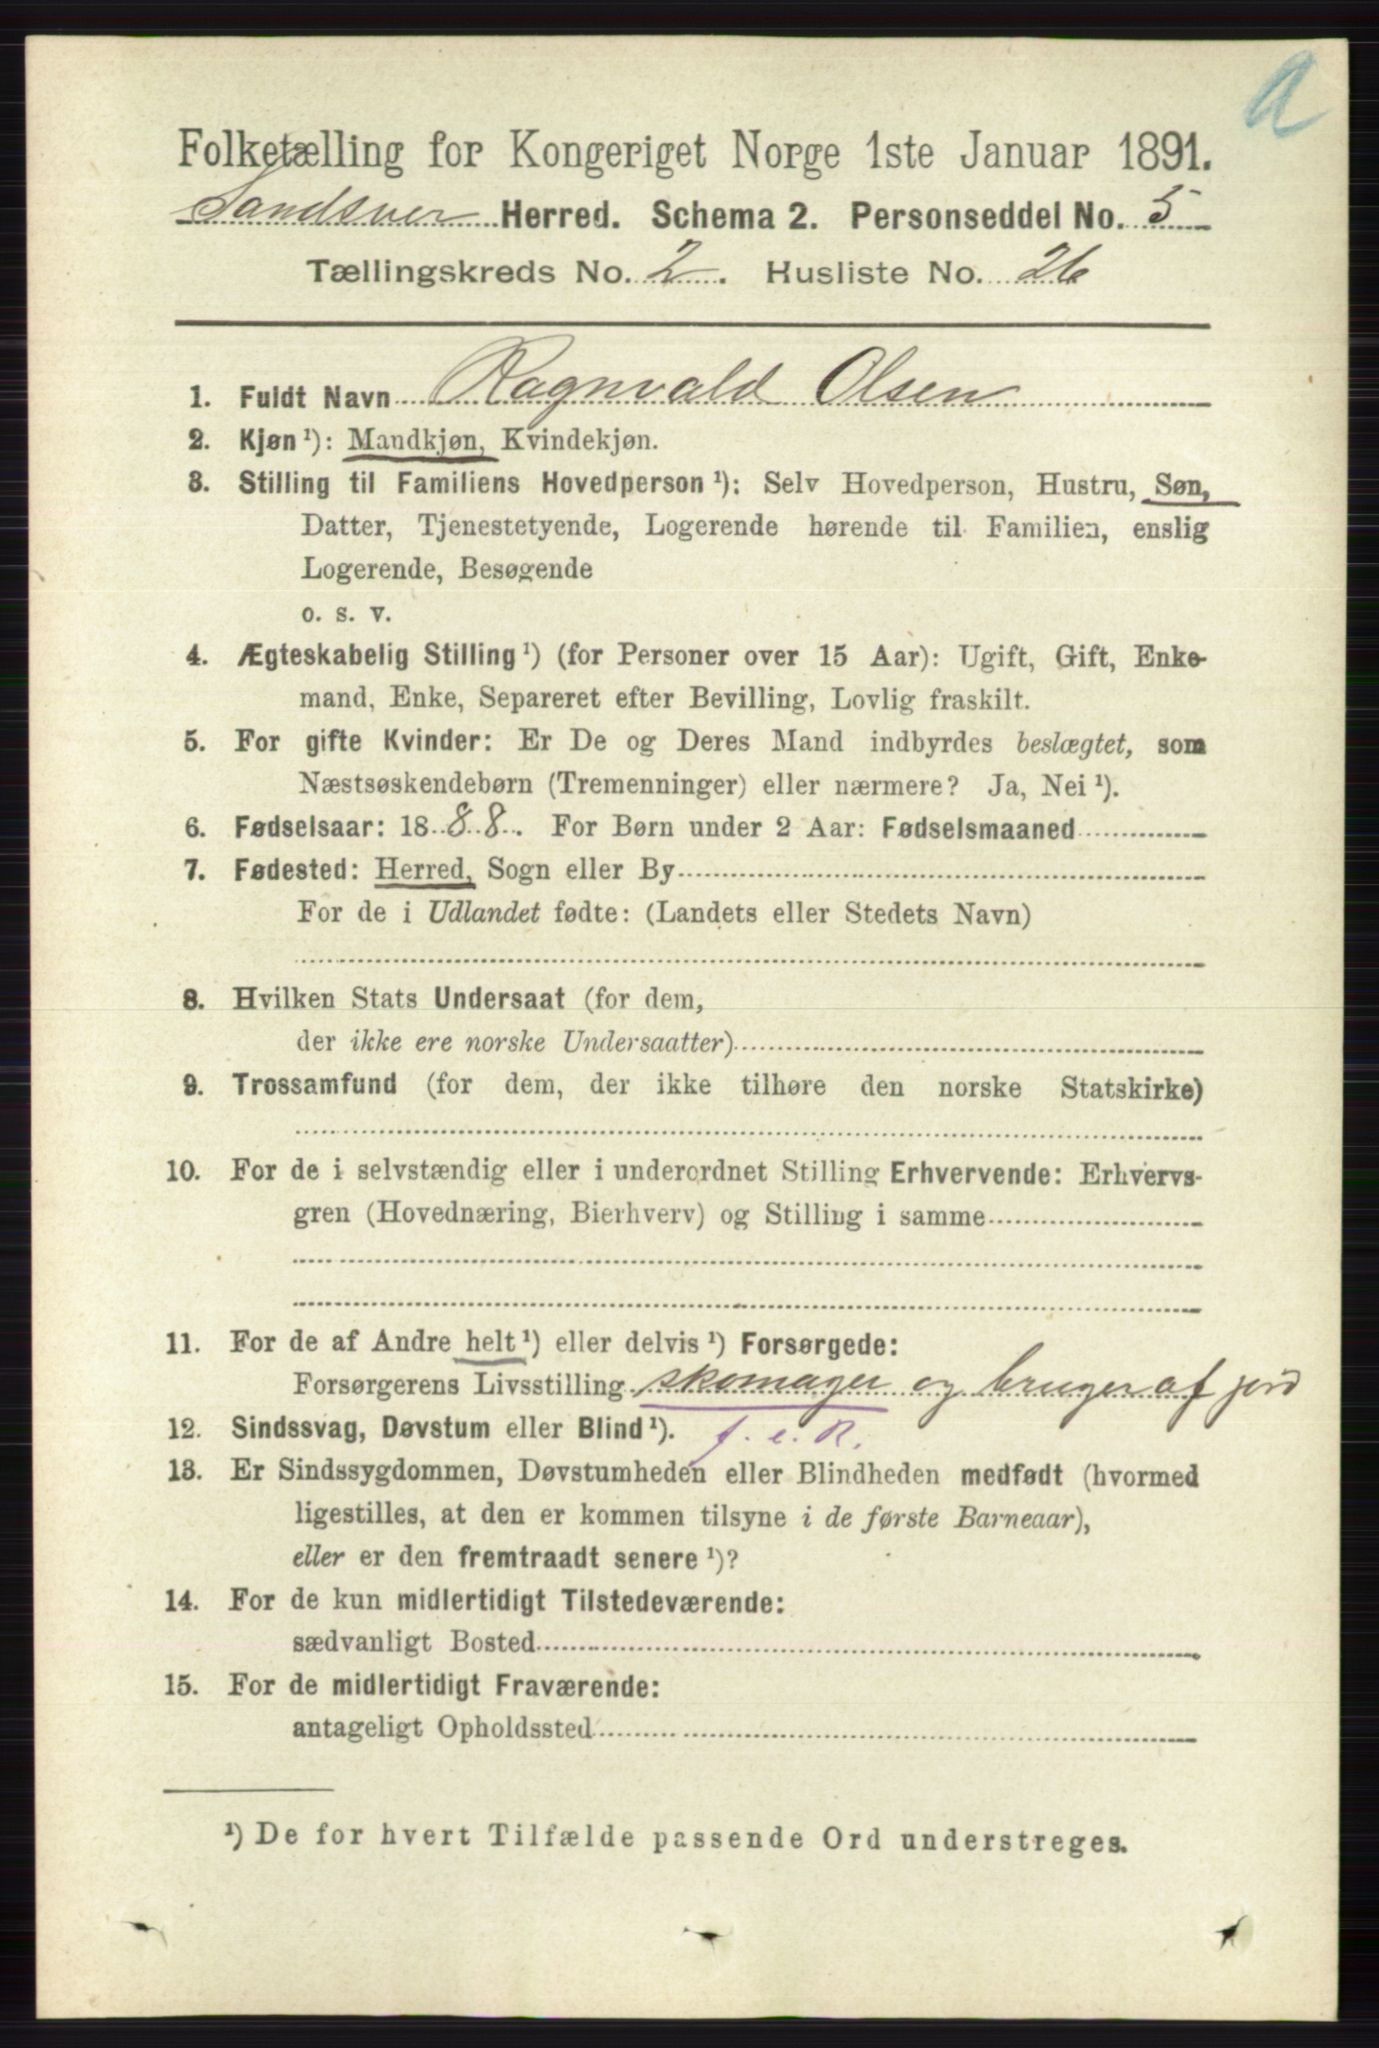 a
Folketælling for Kongeriget Norge 1ste Januar 1891.
Sandsver Herred. Schema 2. Personseddel No. 5
Tællingskreds No. 2. Husliste No. 26
1. Fuldt Navn Ragnvald Olsen
2. Kjøn ¹): Mandkjøn, Kvindekjøn.
3. Stilling til Familiens Hovedperson ¹): Selv Hovedperson, Hustru, Søn,
Datter, Tjenestetyende, Logerende hørende til Familien, enslig
Logerende, Besøgende
o. s. v.
4. Ægteskabelig Stilling ¹) (for Personer over 15 Aar): Ugift, Gift, Enke-
mand, Enke, Separeret efter Bevilling, Lovlig fraskilt.
5. For gifte Kvinder: Er De og Deres Mand indbyrdes beslægtet, som
Næstsøskendebørn (Tremenninger) eller nærmere? Ja, Nei ¹).
6. Fødselsaar: 1888. For Børn under 2 Aar: Fødselsmaaned
7. Fødested: Herred, Sogn eller By
For de i Udlandet fødte: (Landets eller Stedets Navn)
8. Hvilken Stats Undersaat (for dem,
der ikke ere norske Undersaatter)
9. Trossamfund (for dem, der ikke tilhøre den norske Statskirke)
10. For de i selvstændig eller i underordnet Stilling Erhvervende: Erhvervs-
gren (Hovednæring, Bierhverv) og Stilling i samme
11. For de af Andre helt ¹) eller delvis ¹) Forsørgede:
Forsørgerens Livsstilling skomager og bruger af jord
12. Sindssvag, Døvstum eller Blind ¹). f. e. R.
13. Er Sindssygdommen, Døvstumheden eller Blindheden medfødt (hvormed
ligestilles, at den er kommen tilsyne i de første Barneaar),
eller er den fremtraadt senere ¹)?
14. For de kun midlertidigt Tilstedeværende:
sædvanligt Bosted
15. For de midlertidigt Fraværende:
antageligt Opholdssted
¹) De for hvert Tilfælde passende Ord understreges.